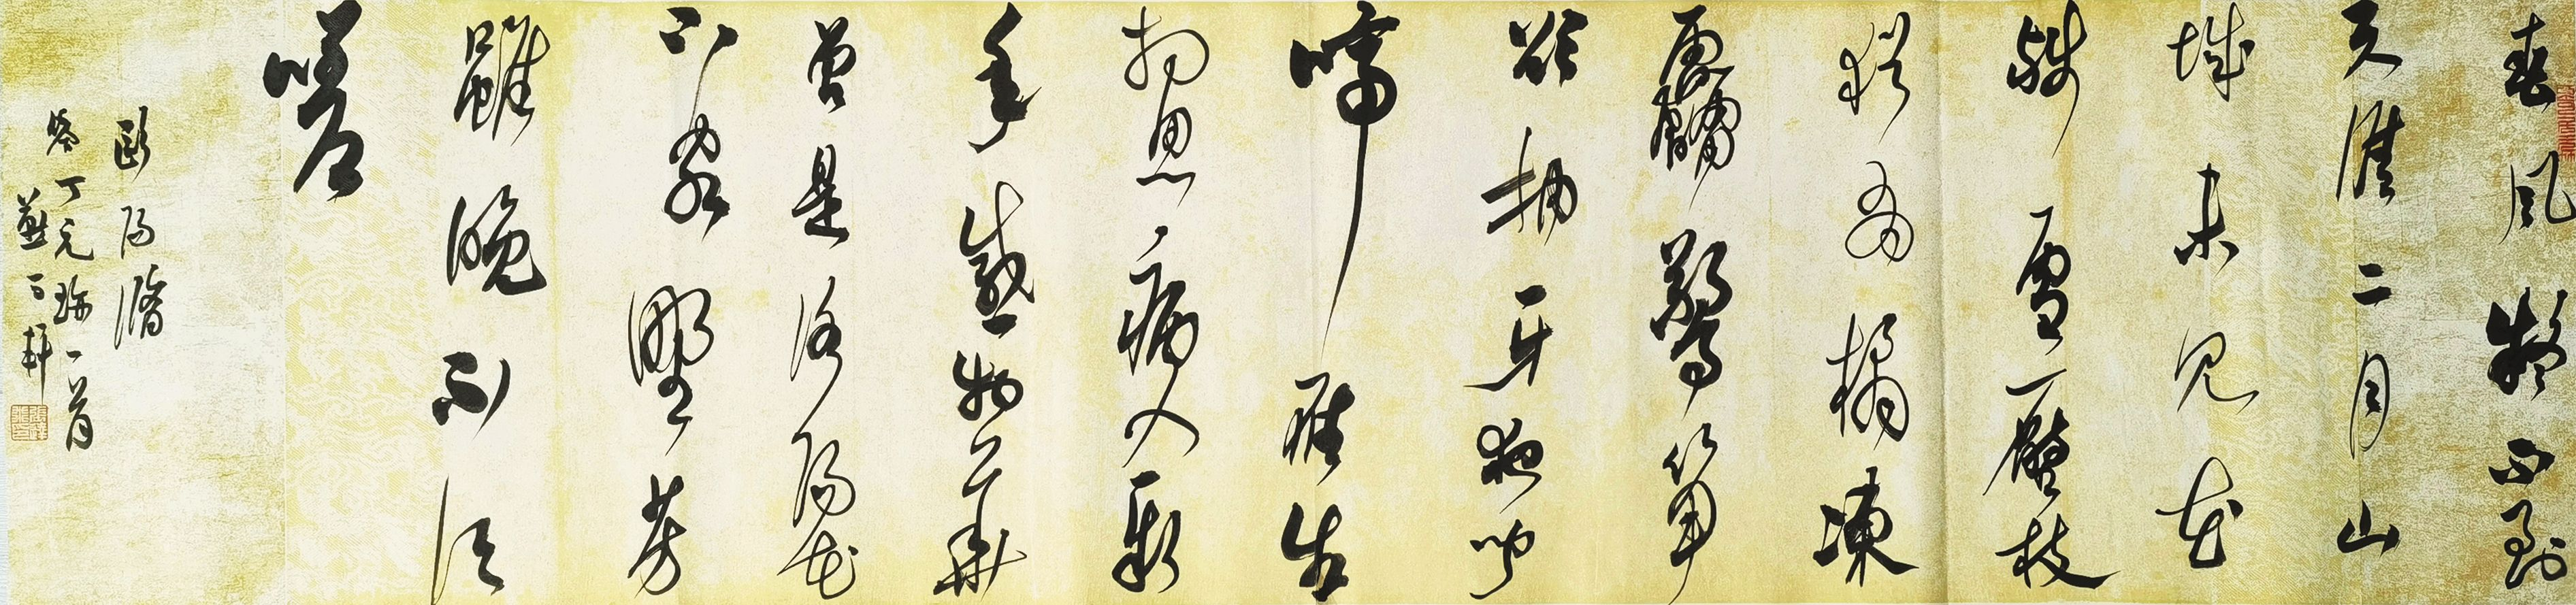 春風疑不到
天涯二月山
城未見花
殘雪壓枝
猶有橘凍
雷驚筍
欲抽牙夜聞
啼雁生
相思病入新
年感物華
曾是洛陽花
下客野芳
雖晚不須
嗟
歐陽脩
答丁元珍一首